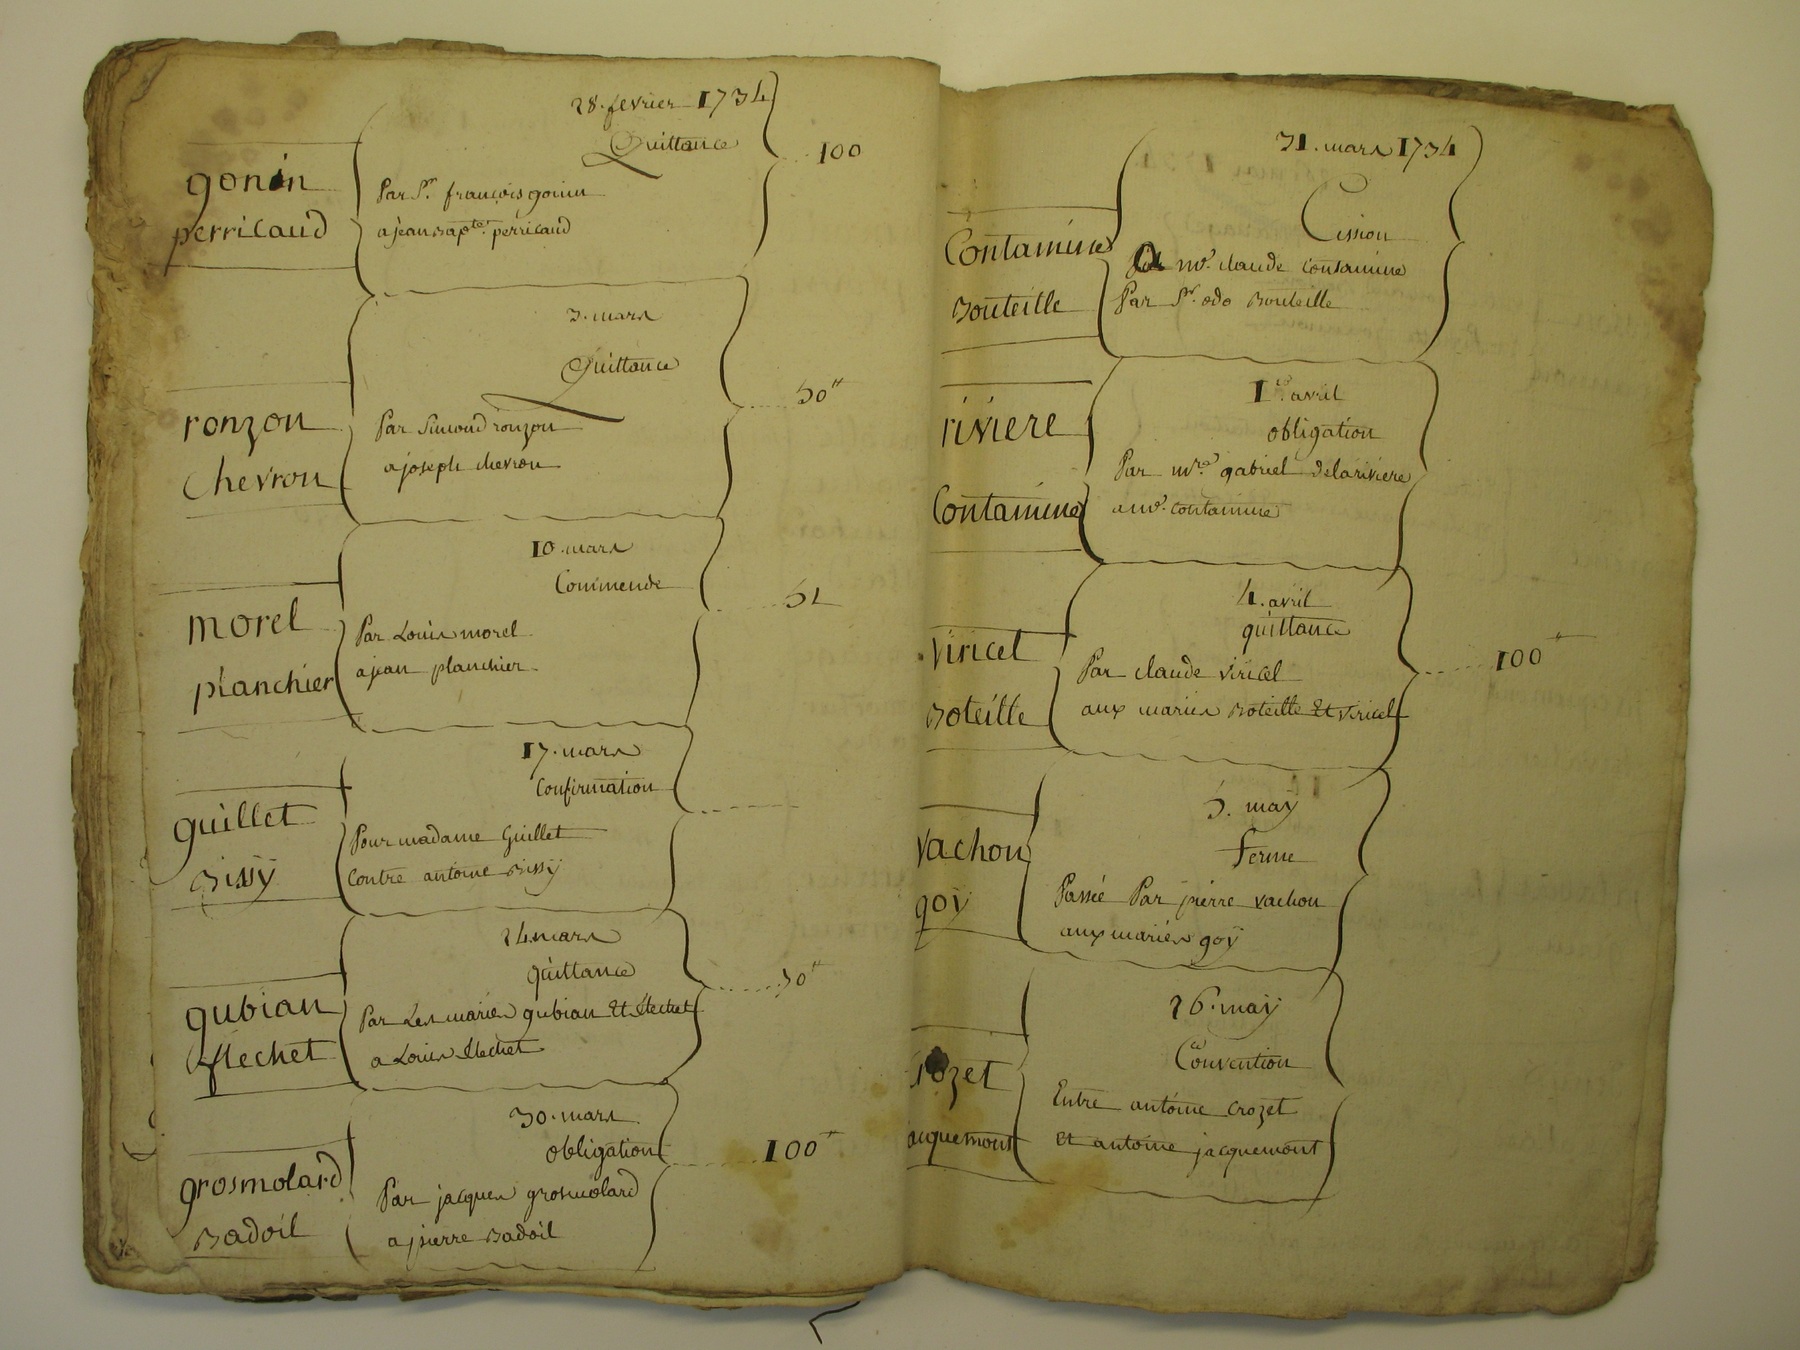 28. fevrier 1734
Quittance
gonin
perricaud
Par Sr. françois gonin
a jean bapte. perricaud
100
3. mars
Quittance
ronzon
Chevron
Par Simond ronzon
a joseph chevron
50#
10. mars
Commende
morel
planchier
Par Louis morel
a jean planchier
51
17. mars
Confirmation
guillet
Bissÿ
Pour madame Guillet
Contre antoine Bissÿ
24. mars
quittance
gubian
flechet
Par Les mariés gubian Et flechet
a Louis flechet
30#
30. mars
obligation
grosmolard
Badoil
Par jacques grosmolard
a pierre Badoil
100#
31. mars 1734
Cission
Contamine
Bouteille
A me. claude Contamine
Par Sr. odo Bouteille
1er. avril
obligation
riviere
Contamine
Par mre. gabriel delariviere
a me. Contamine
4. avril
quittance
Viricel
Boteille
Par claude Viricel
aux mariés Boteille Et Viricel
100#
5. maÿ
Ferme
Vachon
goÿ
Passée Par pierre vachon
aux mariés goÿ
26. maÿ
Convention
rozet
acquemont
Entre antoine Crozet
et antoine jacquemont